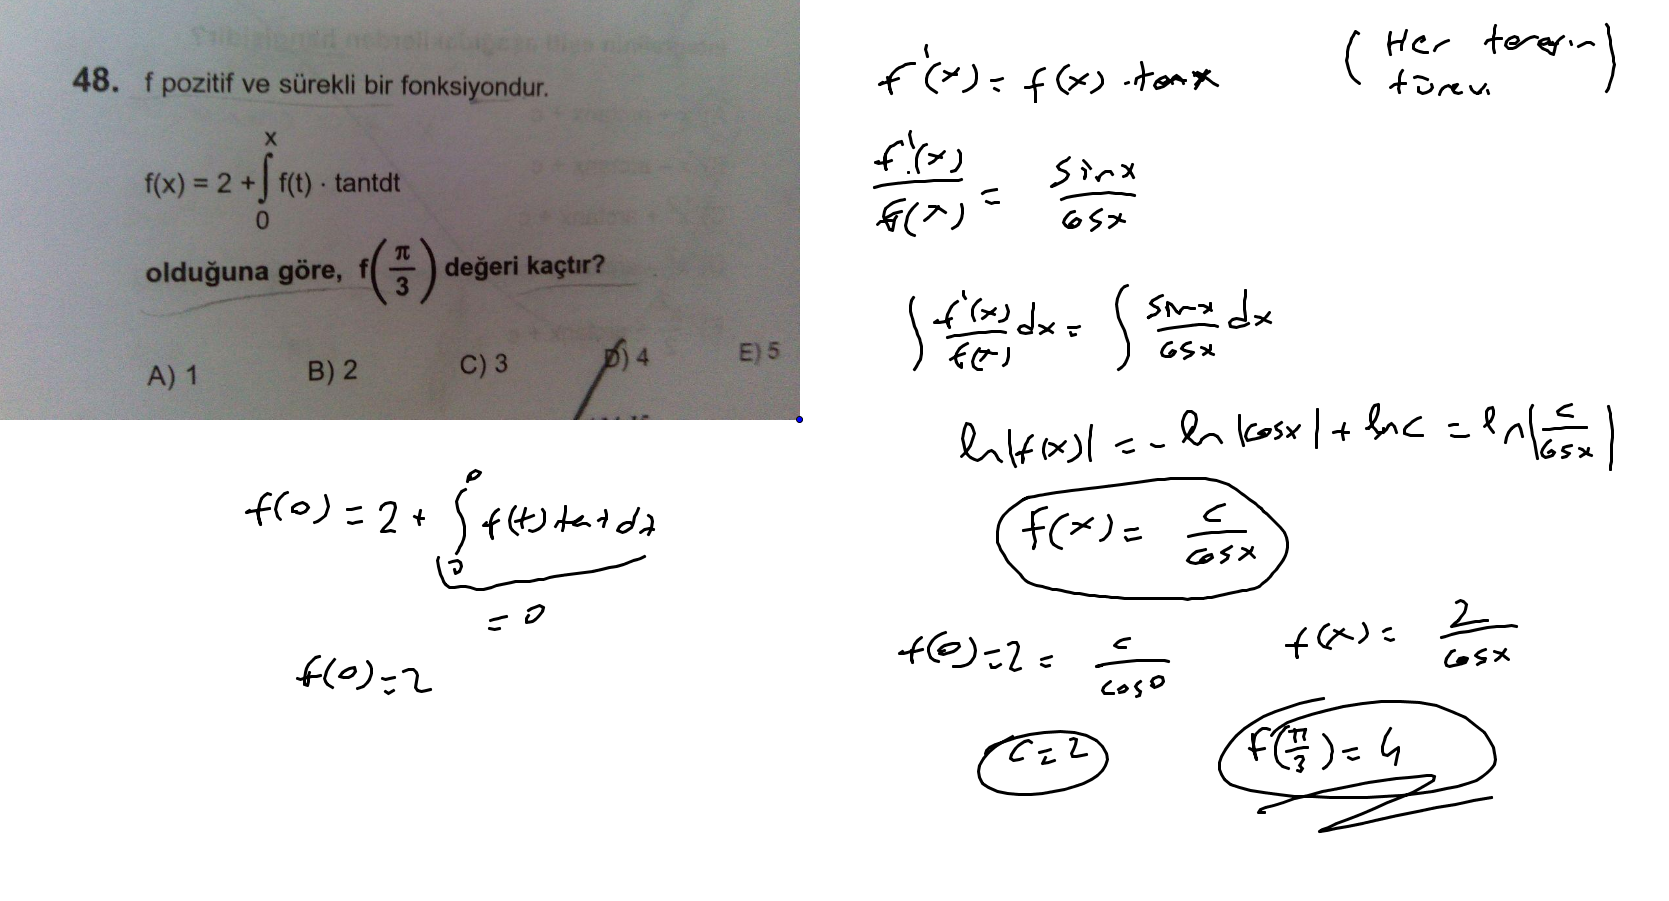 48. f pozitif ve sürekli bir fonksiyondur.
f(x) = 2 + ∫₀ˣ f(t) · tantdt
olduğuna göre, f(π/3) değeri kaçtır?
A) 1 B) 2 C) 3 D) 4 E) 5
f(0) = 2 + ∫₀⁰ f(t) tant dt
= 0
f(0) = 2
f'(x) = f(x) · tanx (Her tarafın
türevi)
f'(x)/f(x) = sinx/cosx
∫ f'(x)/f(x) dx = ∫ sinx/cosx dx
ln|f(x)| = - ln|cosx| + lnc = ln|c/cosx|
f(x) = c/cosx
f(0) = 2 = c/cos0 f(x) = 2/cosx
c = 2 f(π/3) = 4